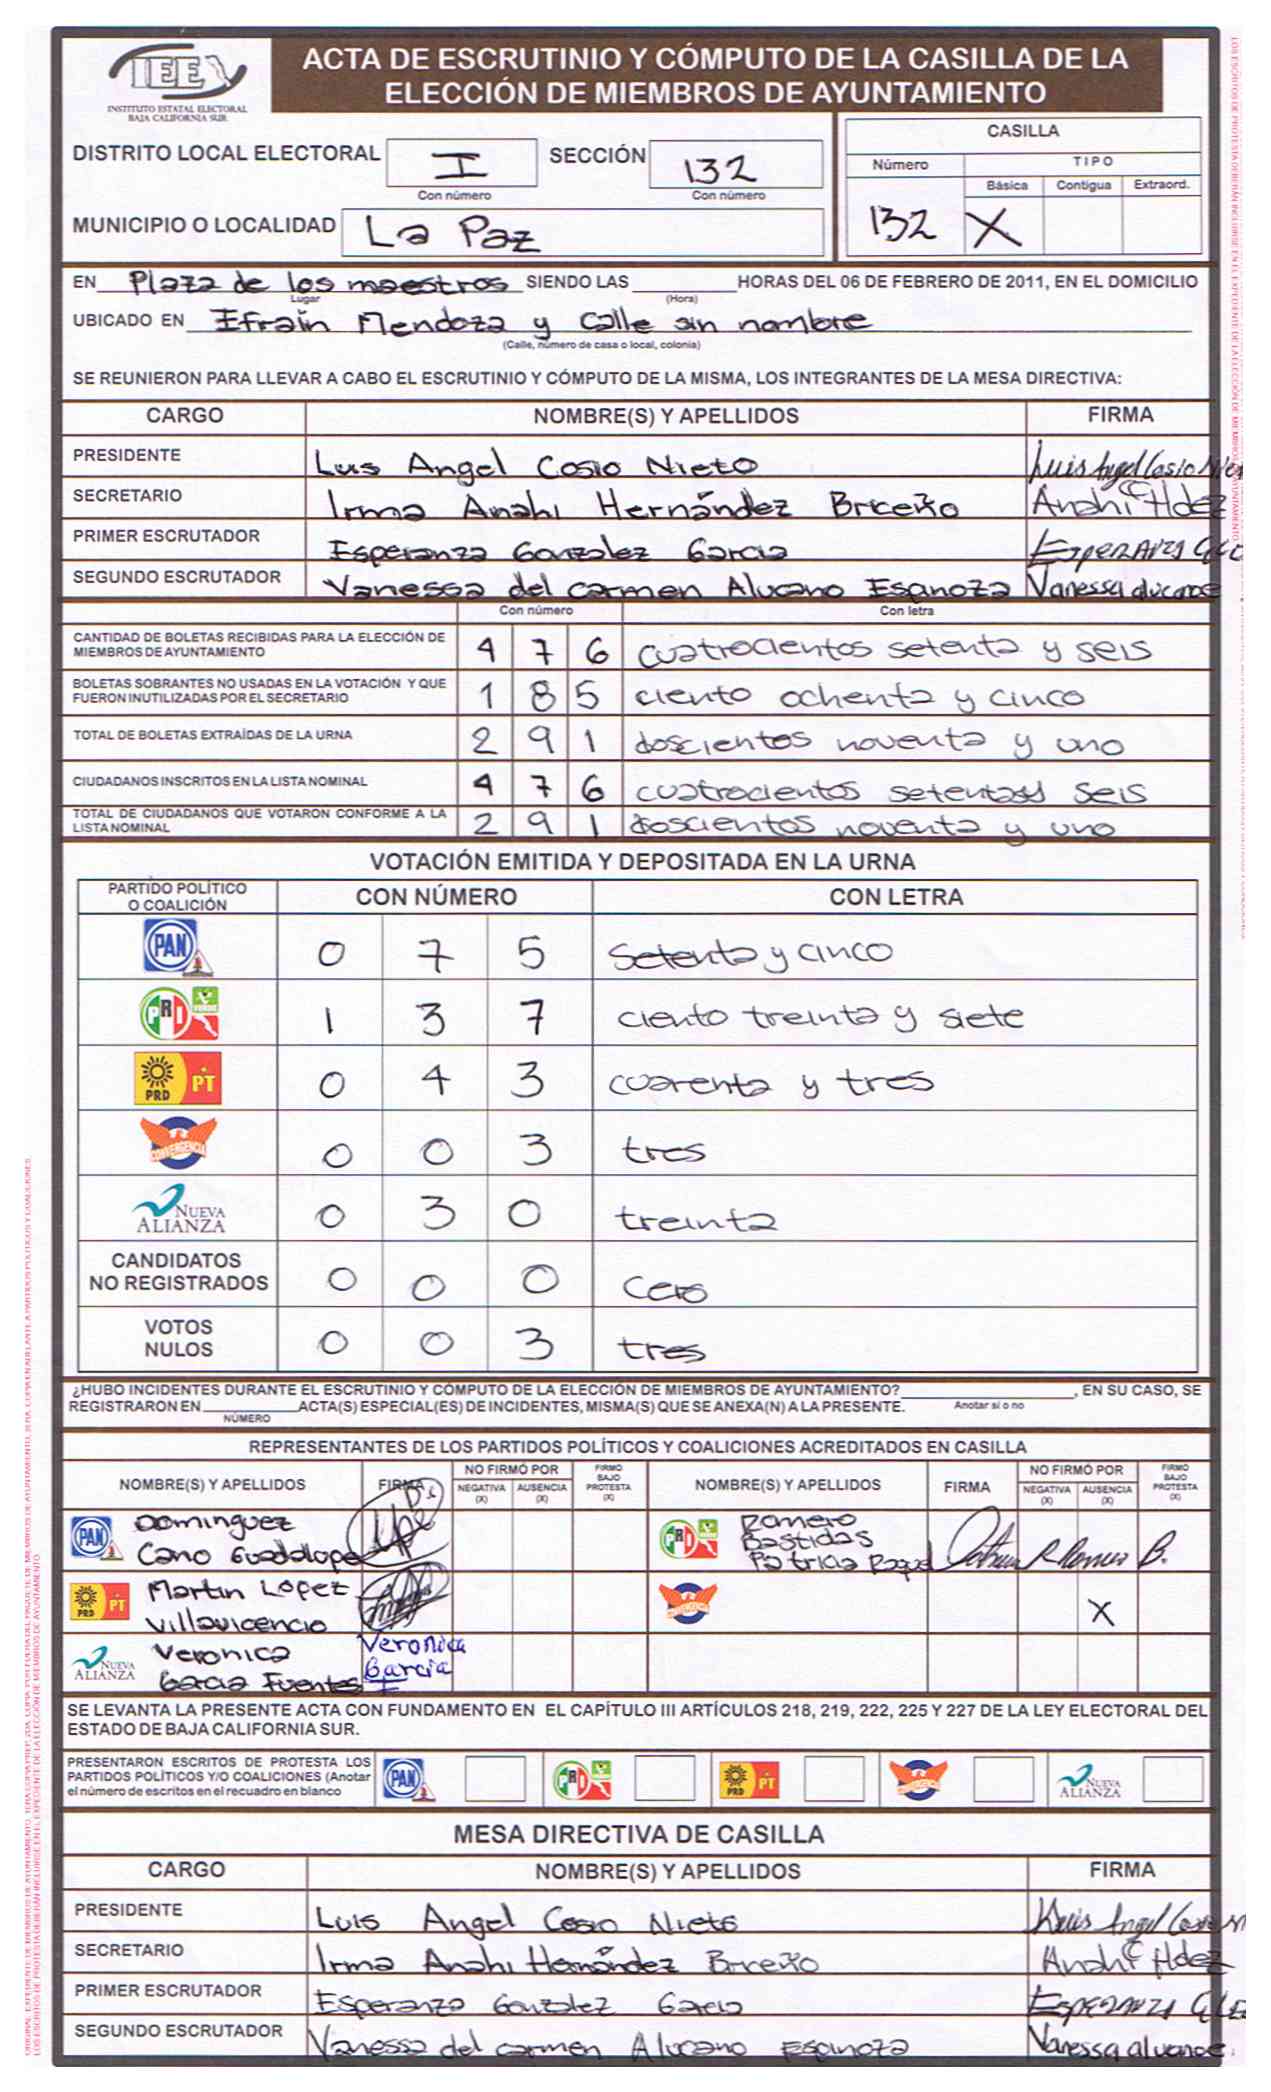 IEEX
INSTITUTO ESTATAL ELECTORAL
BAJA CALIFORNIA SUR
ACTA DE ESCRUTINIO Y CÓMPUTO DE LA CASILLA DE LA
ELECCIÓN DE MIEMBROS DE AYUNTAMIENTO
DISTRITO LOCAL ELECTORAL I SECCIÓN 132
Con número Con número
MUNICIPIO O LOCALIDAD La Paz
CASILLA
Número TIPO
Básica Contigua Extraord.
132 X
EN Plaza de los maestros SIENDO LAS HORAS DEL 06 DE FEBRERO DE 2011, EN EL DOMICILIO
Lugar (Hora)
UBICADO EN Efraín Mendoza y Calle sin nombre
(Calle, número de casa o local, colonia)
SE REUNIERON PARA LLEVAR A CABO EL ESCRUTINIO Y CÓMPUTO DE LA MISMA, LOS INTEGRANTES DE LA MESA DIRECTIVA:
CARGO NOMBRE(S) Y APELLIDOS FIRMA
PRESIDENTE Luis Angel Cosio Nieto Luis Angel Cosio
SECRETARIO Irma Anahi Hernández Briceño Anahi Hdez
PRIMER ESCRUTADOR Esperanza Gonzalez Garcia Esperanza
SEGUNDO ESCRUTADOR Vanessa del carmen Alucano Espinoza Vanessa
Con número Con letra
CANTIDAD DE BOLETAS RECIBIDAS PARA LA ELECCIÓN DE
MIEMBROS DE AYUNTAMIENTO 4 7 6 cuatrocientos setenta y seis
BOLETAS SOBRANTES NO USADAS EN LA VOTACIÓN Y QUE
FUERON INUTILIZADAS POR EL SECRETARIO 1 8 5 ciento ochenta y cinco
TOTAL DE BOLETAS EXTRAÍDAS DE LA URNA 2 9 1 doscientos noventa y uno
CIUDADANOS INSCRITOS EN LA LISTA NOMINAL 4 7 6 cuatrocientos setenta y seis
TOTAL DE CIUDADANOS QUE VOTARON CONFORME A LA
LISTA NOMINAL 2 9 1 doscientos noventa y uno
VOTACIÓN EMITIDA Y DEPOSITADA EN LA URNA
PARTIDO POLÍTICO
O COALICIÓN CON NÚMERO CON LETRA
PAN 0 7 5 Setenta y cinco
PRI VERDE 1 3 7 ciento treinta y siete
PRD PT 0 4 3 cuarenta y tres
CONVERGENCIA 0 0 3 tres
NUEVA ALIANZA 0 3 0 treinta
CANDIDATOS
NO REGISTRADOS 0 0 0 cero
VOTOS
NULOS 0 0 3 tres
¿HUBO INCIDENTES DURANTE EL ESCRUTINIO Y CÓMPUTO DE LA ELECCIÓN DE MIEMBROS DE AYUNTAMIENTO? , EN SU CASO, SE
REGISTRARON EN ACTA(S) ESPECIAL(ES) DE INCIDENTES, MISMA(S) QUE SE ANEXA(N) A LA PRESENTE. Anotar si o no
NÚMERO
REPRESENTANTES DE LOS PARTIDOS POLÍTICOS Y COALICIONES ACREDITADOS EN CASILLA
NOMBRE(S) Y APELLIDOS FIRMA NO FIRMÓ POR NEGATIVA (X) AUSENCIA (X) FIRMO BAJO PROTESTA (X) NOMBRE(S) Y APELLIDOS FIRMA NO FIRMÓ POR NEGATIVA (X) AUSENCIA (X) FIRMO BAJO PROTESTA (X)
PAN Dominguez
Cano Guadalupe
PRI Romero
Bastidas
Patricia Raquel
PRD PT Martin Lopez
Villavicencio
CONVERGENCIA X
NUEVA ALIANZA Veronica
Garcia Fuentes Veronica
Garcia
SE LEVANTA LA PRESENTE ACTA CON FUNDAMENTO EN EL CAPÍTULO III ARTÍCULOS 218, 219, 222, 225 Y 227 DE LA LEY ELECTORAL DEL
ESTADO DE BAJA CALIFORNIA SUR.
PRESENTARON ESCRITOS DE PROTESTA LOS
PARTIDOS POLÍTICOS Y/O COALICIONES (Anotar
el número de escritos en el recuadro en blanco
PAN PRI PRD PT CONVERGENCIA NUEVA ALIANZA
MESA DIRECTIVA DE CASILLA
CARGO NOMBRE(S) Y APELLIDOS FIRMA
PRESIDENTE Luis Angel Cosio Nieto Luis Angel Cosio
SECRETARIO Irma Anahi Hernández Briceño Anahi Hdez
PRIMER ESCRUTADOR Esperanza Gonzalez Garcia Esperanza
SEGUNDO ESCRUTADOR Vanessa del carmen Alucano Espinoza Vanessa